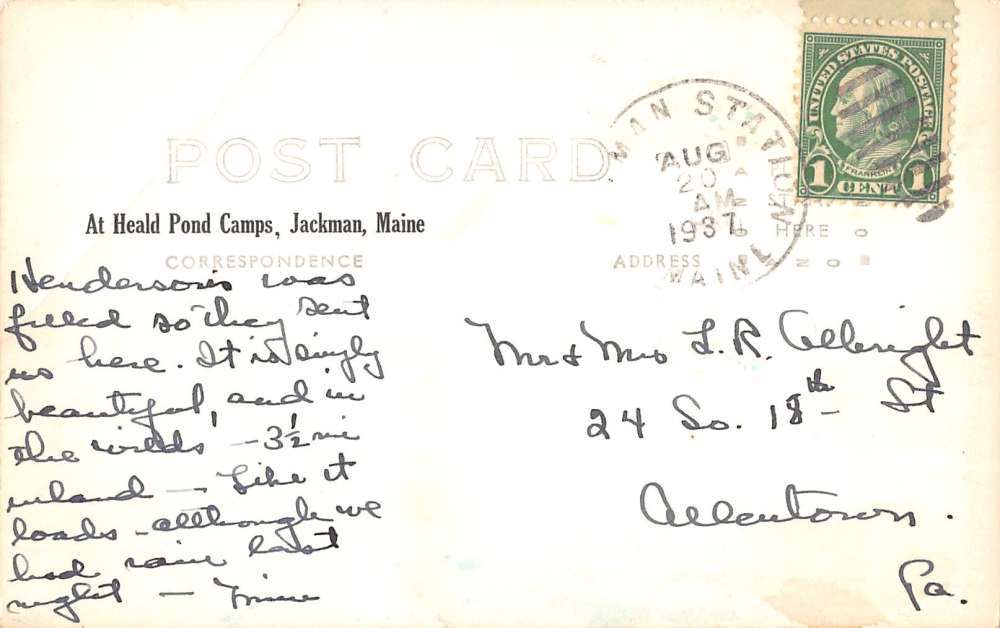 UNITED STATES POSTAGE
FRANKLIN
1 CENT 1
MAN STATION
AUG
20
AM
1937
MAINE
POST CARD
At Heald Pond Camps, Jackman, Maine
CORRESPONDENCE
ADDRESS
HERE
Henderson's was
filled so they sent
us here. It is simply
beautiful, and in
the wilds - 3½ mi
inland - Like it
loads - although we
had rain last
night -
Mr & Mrs L. R. Albright
24 So. 18th St
Allentown.
Pa.